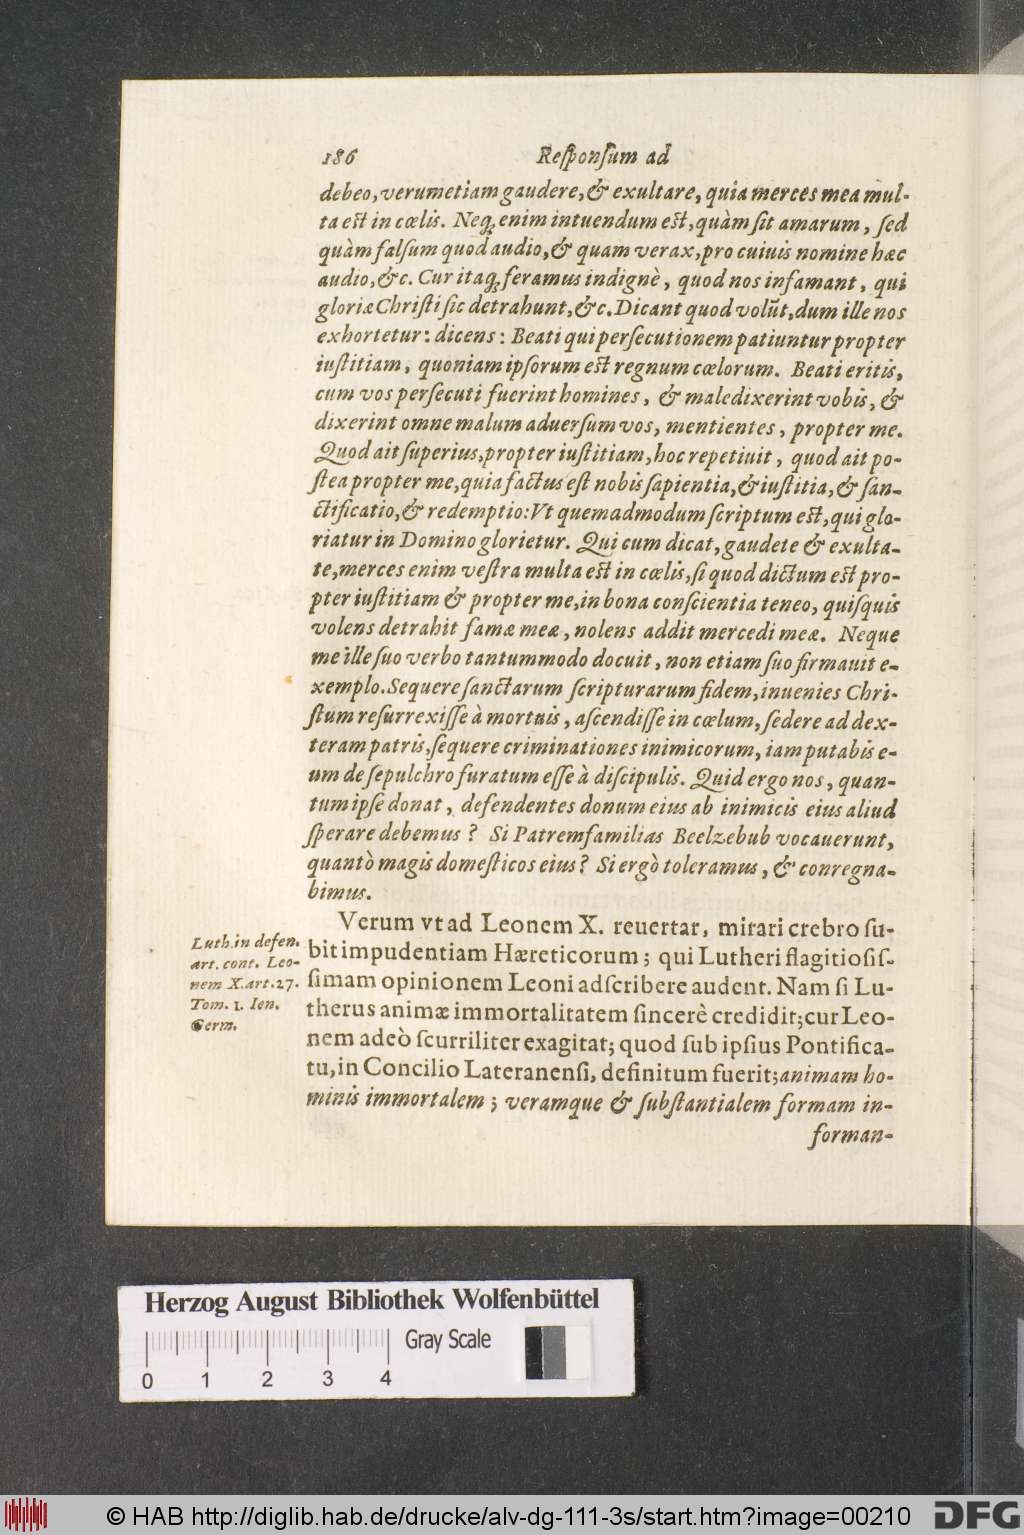 186 Reſponſum ad
debeo, verumetiam gaudere, & exultare, quia merces mea mul-
ta est in cœlis. Neq; enim intuendum est, quàm ſit amarum, ſed
quàm falſum quod audio, & quam verax, pro cuiuis nomine hæc
audio, &c. Cur itaq; feramus indignè, quod nos infamant, qui
gloriæ Chriſti ſic detrahunt, &c. Dicant quod volũt, dum ille nos
exhortetur: dicens: Beati qui perſecutionem patiuntur propter
iuſtitiam, quoniam ipſorum est regnum cœlorum. Beati eritis,
cum vos perſecuti fuerint homines, & maledixerint vobis, &
dixerint omne malum aduerſum vos, mentientes, propter me.
Quod ait ſuperius, propter iuſtitiam, hoc repetiuit, quod ait po-
ſtea propter me, quia factus eſt nobis ſapientia, & iuſtitia, & ſan-
ctificatio, & redemptio: Vt quemadmodum ſcriptum est, qui glo-
riatur in Domino glorietur. Qui cum dicat, gaudete & exulta-
te, merces enim veſtra multa est in cœlis, ſi quod dictum est pro-
pter iuſtitiam & propter me, in bona conſcientia teneo, quiſquis
volens detrahit famæ meæ, nolens addit mercedi meæ. Neque
me ille ſuo verbo tantummodo docuit, non etiam ſuo firmauit e-
xemplo. Sequere ſanctarum ſcripturarum fidem, inuenies Chri-
ſtum reſurrexiſſe à mortuis, aſcendiſſe in cœlum, ſedere ad dex-
teram patris, ſequere criminationes inimicorum, iam putabis e-
um de ſepulchro furatum eſſe à diſcipulis. Quid ergo nos, quan-
tum ipſe donat, defendentes donum eius ab inimicis eius aliud
ſperare debemus? Si Patremfamilias Beelzebub vocauerunt,
quantò magis domeſticos eius? Si ergò toleramus, & conregna-
bimus.
Verum vt ad Leonem X. reuertar, mirari crebro ſu-
bit impudentiam Hæreticorum; qui Lutheri flagitioſiſ-
ſimam opinionem Leoni adſcribere audent. Nam ſi Lu-
therus animæ immortalitatem ſincerè credidit; cur Leo-
nem adeò ſcurriliter exagitat; quod ſub ipſius Pontifica-
tu, in Concilio Lateranenſi, definitum fuerit; animam ho-
minis immortalem; veramque & ſubſtantialem formam in-
forman-
Luth. in defen.
art. cont. Leo-
nem X. art. 27.
Tom. 1. Ien.
Germ.
Herzog August Bibliothek Wolfenbüttel
Gray Scale
0 1 2 3 4
© HAB http://diglib.hab.de/drucke/alv-dg-111-3s/start.htm?image=00210
DFG